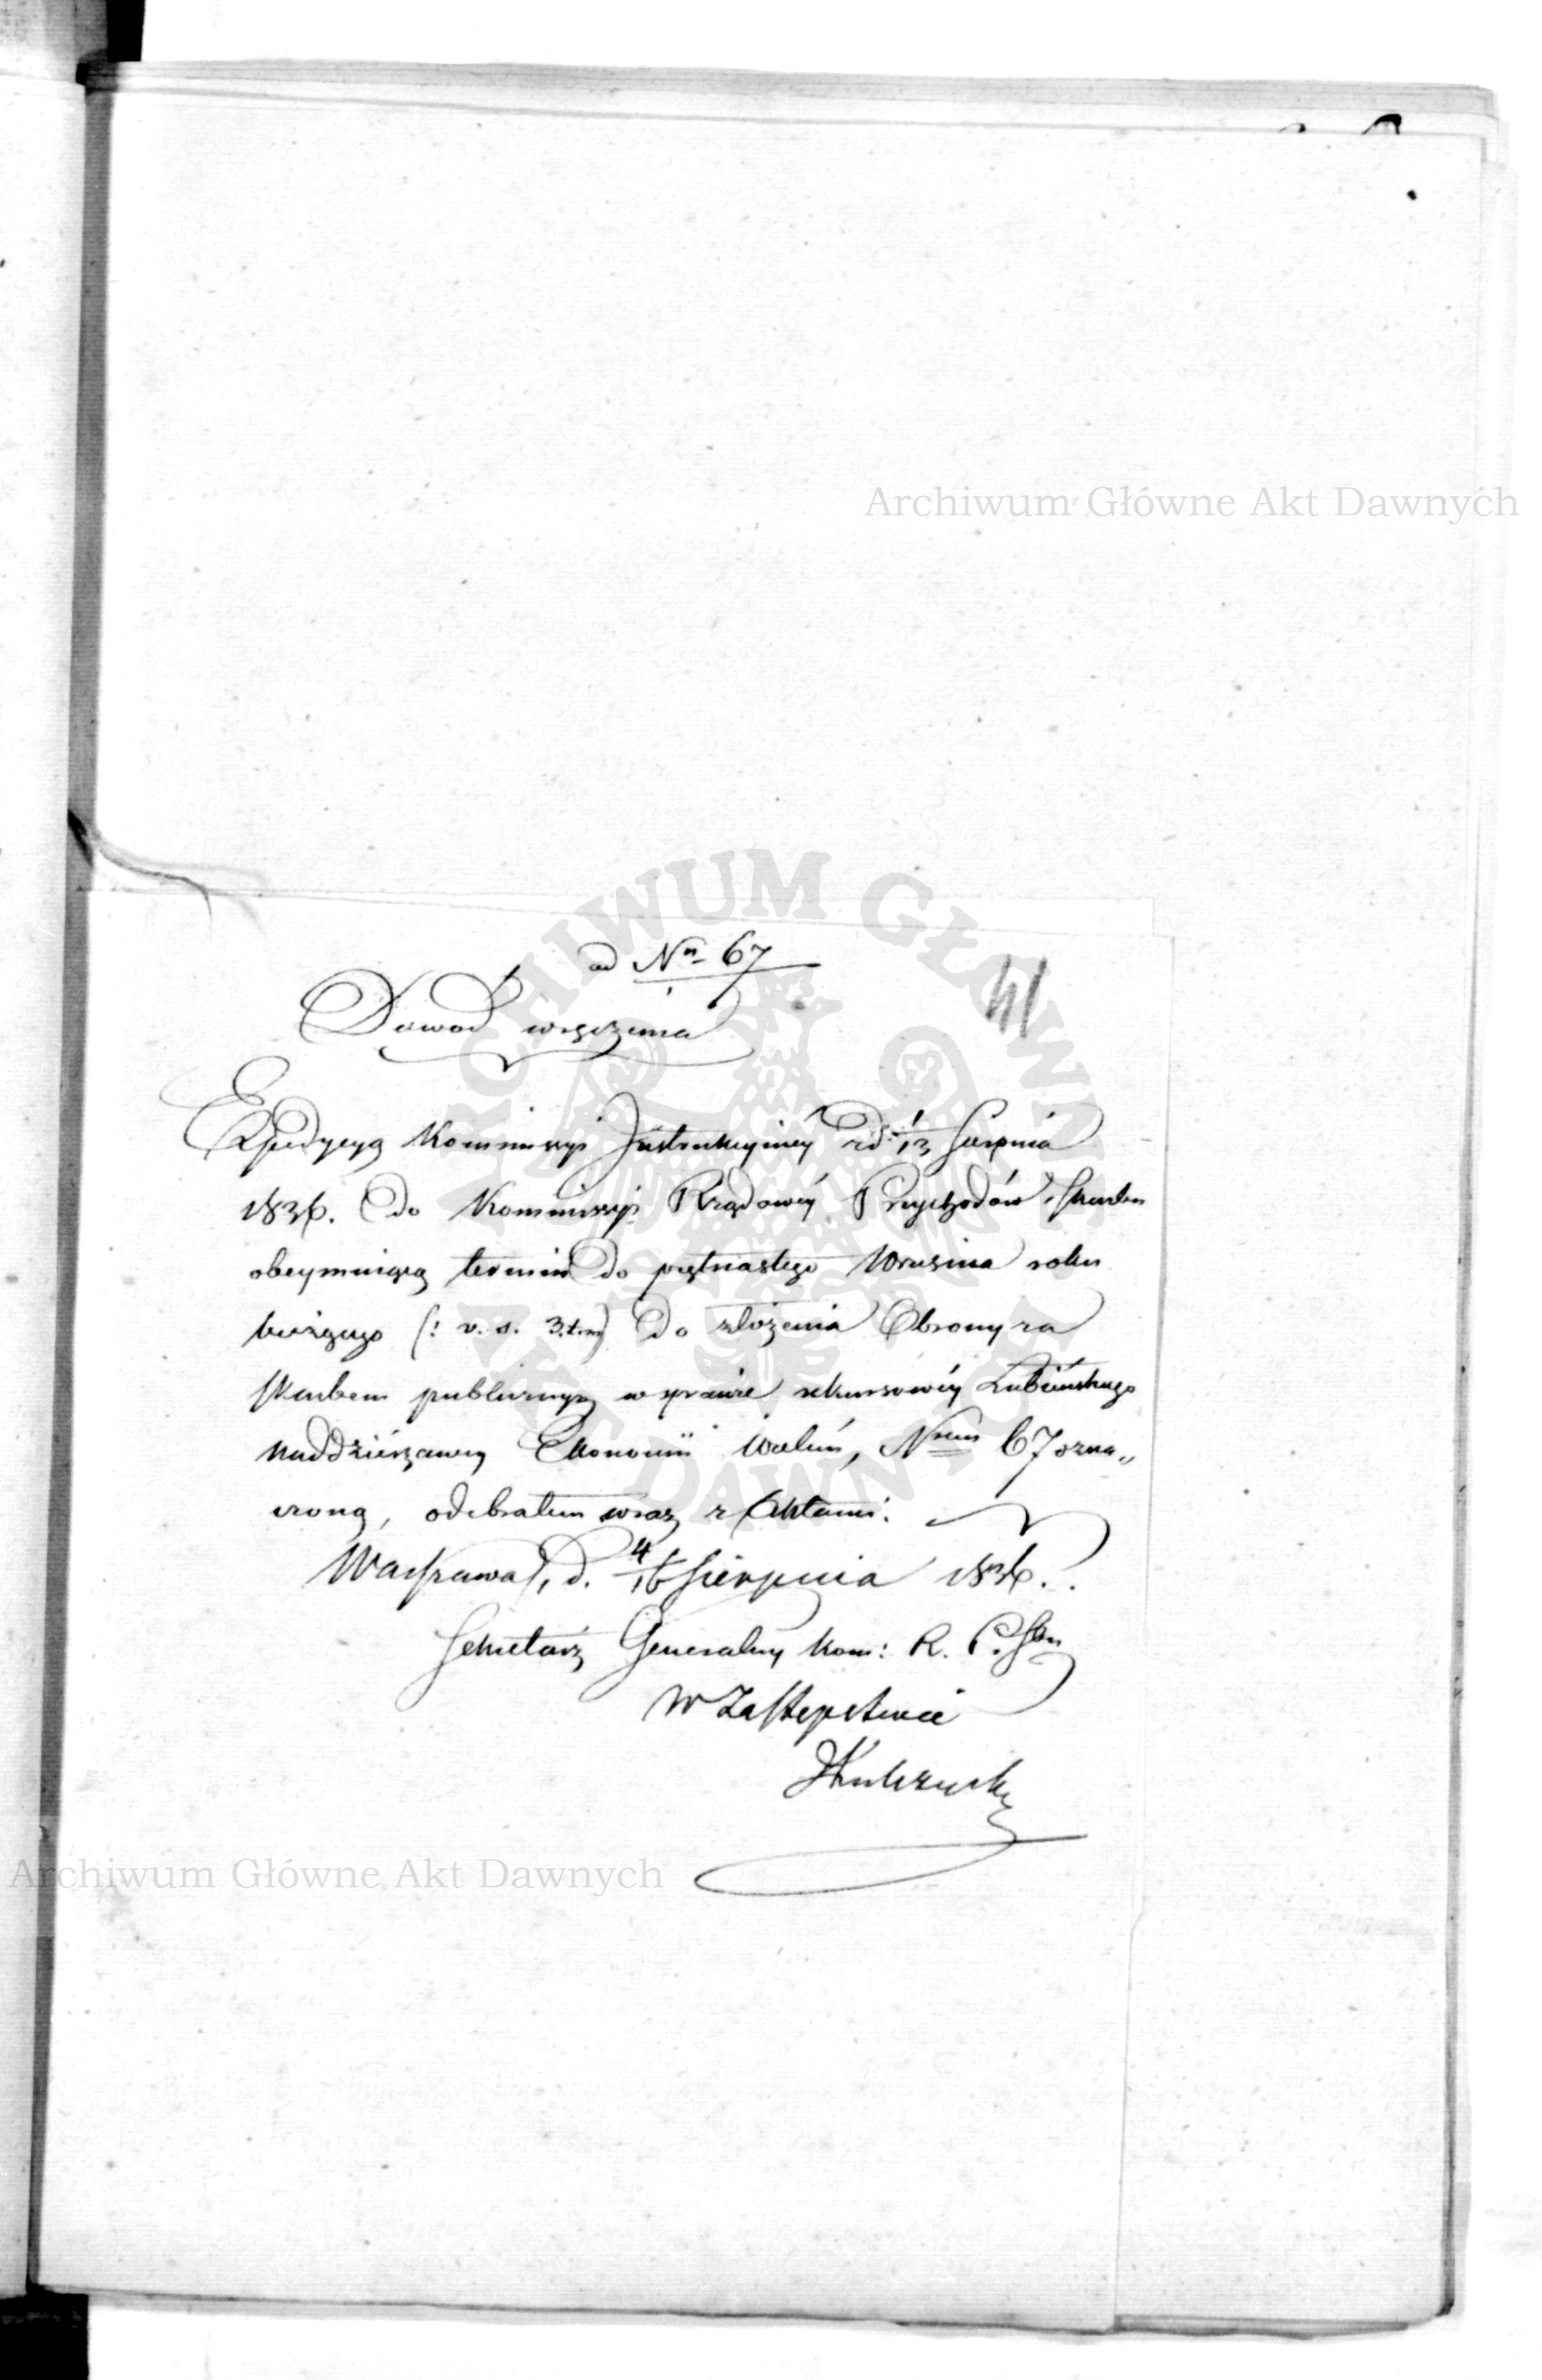 Archiwum Główne Akt Dawnych
ad Nr 67
41
Dowod wręczenia
Expedycyą Kommissyi Instrukcyiney z d. 1/13 Sierpnia
1836. do Kommissyi Rządowéy Przychodów i Skarbu
obeymuiącą termin do piętnastego Września roku
bieżącego (: v. s. 3. t. m) do złożenia Obrony za
skarbem publicznym w sprawie rekursowéy Lubieńskiego
naddzierżawcy Ekonomii Wieluń, Nrem 67 ozna„
czoną, odebrałem wraz z Aktami.
Warszawa, d. 4/16 Sierpnia 1836.
Sekretarz Generalny Kom: R. P. Skar
W Zastępstwie
Archiwum Główne Akt Dawnych
ARCHIWUM GŁÓWNE AKT DAWNYCH